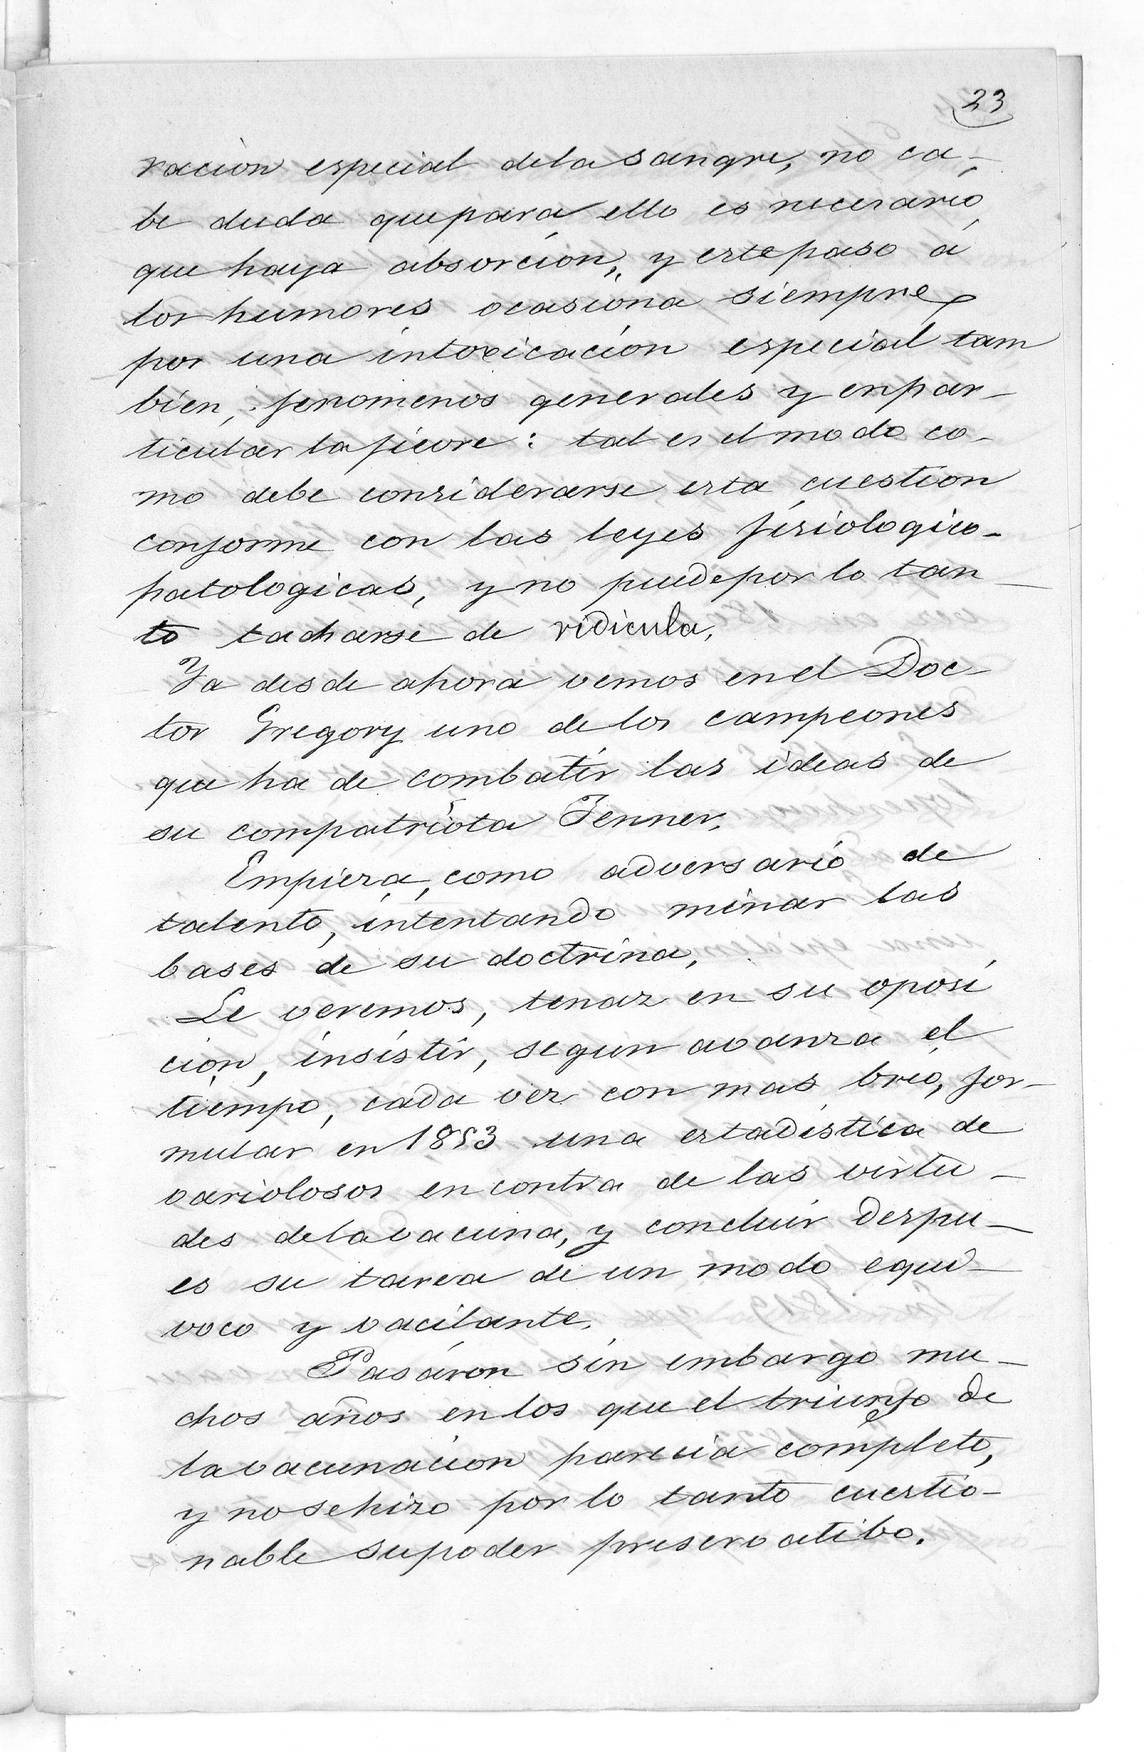 23
racion especial dela sangre, no ca-
be duda que para ello es necesario
que haya absorcion, y este paso á
los humores ocasiona siempre
por una intoxicacion especial tam
bien, fenomenos generales y en par-
ticular la fievre: tal es el modo co-
mo debe considerarse esta cuestion
conforme con las leyes fisiologico-
patologicas, y no puede por lo tan-
to tacharse de ridicula.
Ya desde ahora vemos en el Doc-
tor Gregory uno de los campeones
que ha de combatir las ideas de
su compatriota Jenner.
Empieza, como adversario de
talento, intentando minar las
bases de su doctrina.
Le veremos, tenaz en su oposi
cion, insistir, segun avanza el
tiempo, cada vez con mas brio, for-
mular en 1853 una estadistica de
variolosos en contra de las virtu-
des dela vacuna, y concluir despu-
es su tarea de un modo equi-
voco y vacilante.
Pasáron sin embargo mu-
chos años en los que el triunfo de
la vacunacion parecia completo,
y no se hizo por lo tanto cuestio-
nable su poder preservatibo.